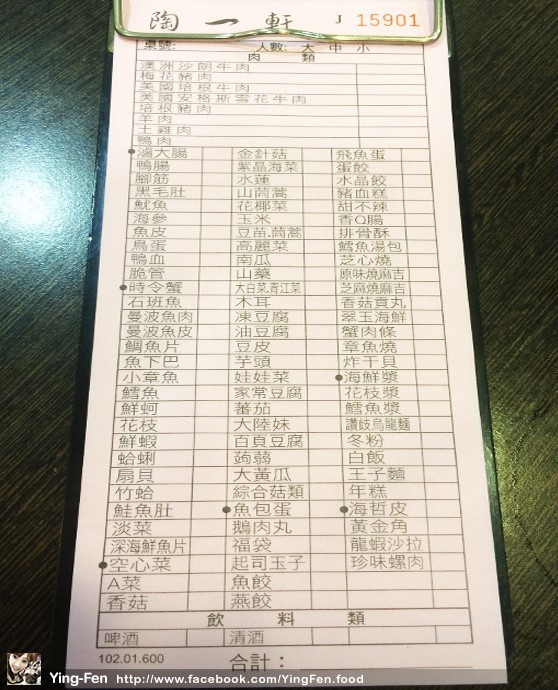 陶一軒 J 15901
桌號: 人數: 大 中 小
肉 類
澳洲沙朗牛肉
梅花豬肉
美國培根牛肉
美國安格斯雪花牛肉
培根豬肉
羊肉
土雞肉
鴨肉
●滷大腸 金針菇 飛魚蛋
鴨腸 紫晶海菜 蛋餃
腳筋 水蓮 水晶餃
黑毛肚 山茼蒿 豬血糕
魷魚 花椰菜 甜不辣
海參 玉米 香Q腸
魚皮 豆苗.茼蒿 排骨酥
鳥蛋 高麗菜 鱈魚湯包
鴨血 南瓜 芝心燒
脆管 山藥 原味燒麻吉
●時令蟹 大白菜.青江菜 芝麻燒麻吉
石班魚 木耳 香菇貢丸
曼波魚肉 凍豆腐 翠玉海鮮
曼波魚皮 油豆腐 蟹肉條
鯛魚片 豆皮 章魚燒
魚下巴 芋頭 炸干貝
小章魚 娃娃菜 ●海鮮漿
鱈魚 家常豆腐 花枝漿
鮮蚵 蕃茄 鱈魚漿
花枝 大陸妹 讚歧烏龍麵
鮮蝦 百頁豆腐 冬粉
蛤蜊 蒟蒻 白飯
扇貝 大黃瓜 王子麵
竹蛤 綜合菇類 年糕
鮭魚肚 ●魚包蛋 ●海哲皮
淡菜 鵝肉丸 黃金角
深海鮮魚片 福袋 龍蝦沙拉
●空心菜 起司玉子 珍味螺肉
A菜 魚餃
香菇 燕餃
飲 料 類
啤酒 清酒
102.01.600 合計:
Ying-Fen http://www.facebook.com/YingFen.food